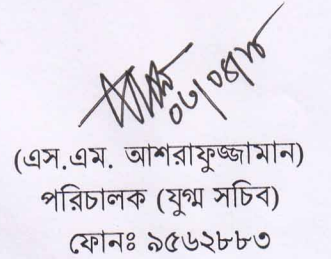 (এস.এম. আশরাফুজ্জামান)
পরিচালক (যুগ্ম সচিব)
ফোনঃ ৯৫৬২৮৮৩